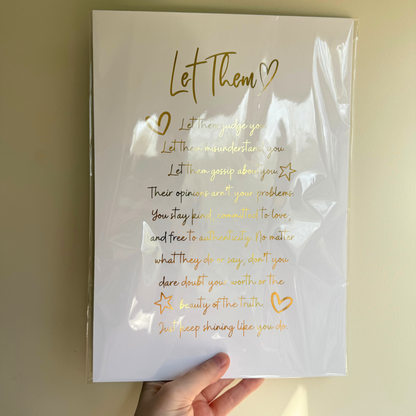 Let Them
Let them judge yo
Let them misunderstand you.
Let them gossip about you
Their opinions aren't your problems.
You stay kind, committed to love,
and free to authenticity. No matter
what they do or say, don't you
dare doubt your worth or the
beauty of the truth.
Just keep shining like you do.